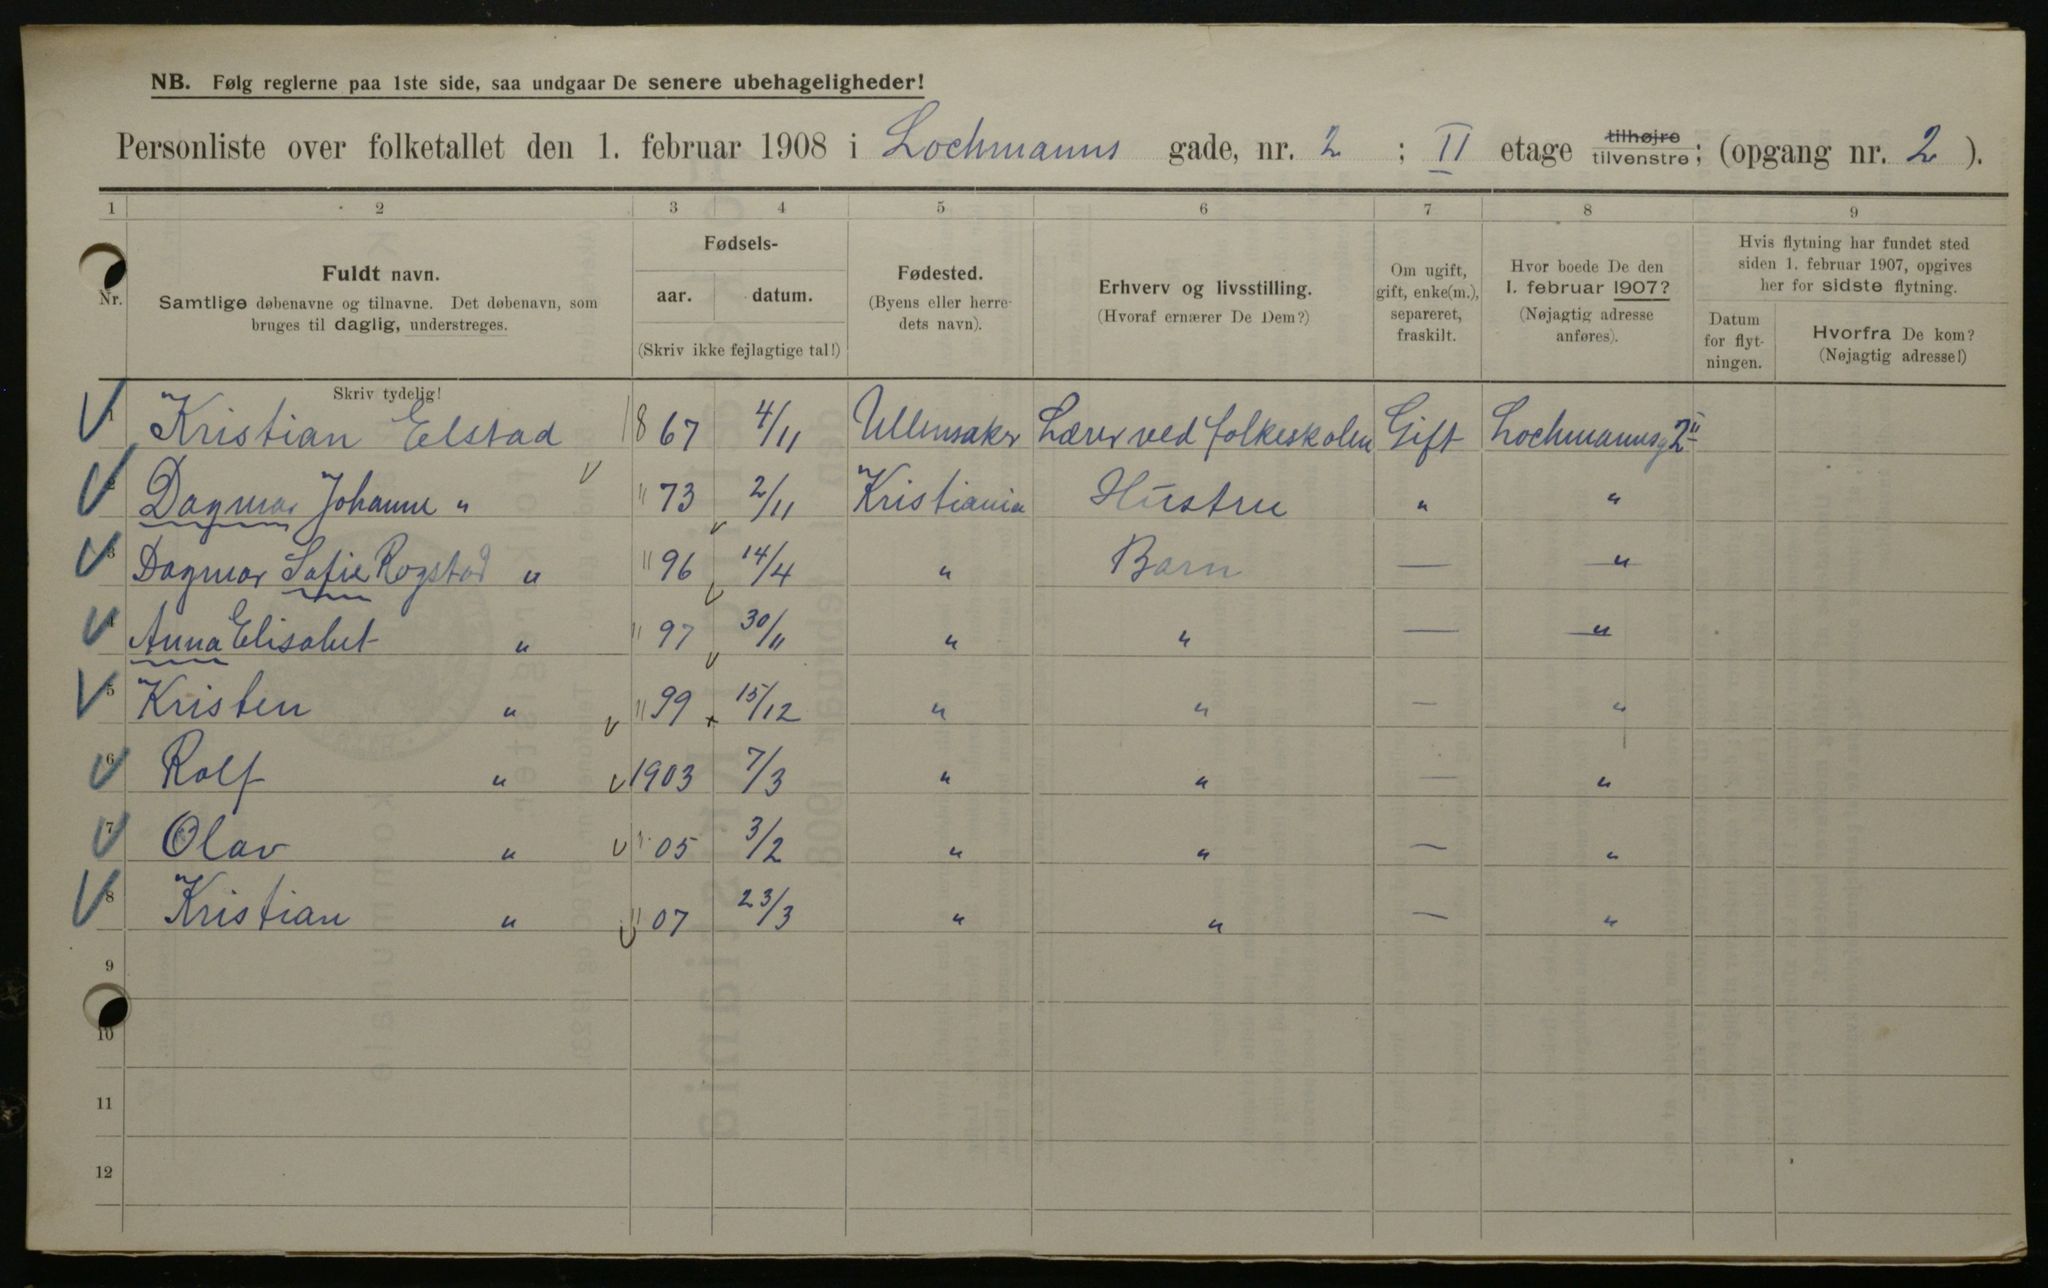 NB. Følg reglerne paa 1ste side, saa undgaar De senere ubehageligheder!
Personliste over folketallet den 1. februar 1908 i Lochmanns gade, nr. 2 ; II etage tilhøjre tilvenstre; (opgang nr. 2 ).
1 2 3 4 5 6 7 8 9
Nr.
Fuldt navn.
Samtlige døbenavne og tilnavne. Det døbenavn, som
bruges til daglig, understreges.
Skriv tydelig!
Fødsels-
aar. datum.
(Skriv ikke fejlagtige tal!)
Fødested.
(Byens eller herre-
dets navn).
Erhverv og livsstilling.
(Hvoraf ernærer De Dem?)
Om ugift,
gift, enke(m.),
separeret,
fraskilt.
Hvor boede De den
1. februar 1907?
(Nøjagtig adresse
anføres).
Hvis flytning har fundet sted
siden 1. februar 1907, opgives
her for sidste flytning.
Datum
for flyt-
ningen.
Hvorfra De kom?
(Nøjagtig adresse!)
1 Kristian Elstad 1867 4/11 Ullensaker Lærer ved folkeskolen Gift Lochmannsg 2 II
2 Dagmar Johanne " " 73 2/11 Kristiania Hustru " "
3 Dagmar Sofie Rogstad " " 96 14/4 " Barn — "
4 Anna Elisabet " " 97 30/11 " " — "
5 Kristen " " 99 15/12 " " — "
6 Rolf " 1903 7/3 " " — "
7 Olav " " 05 3/2 " " — "
8 Kristian " " 07 23/3 " " — "
9
10
11
12